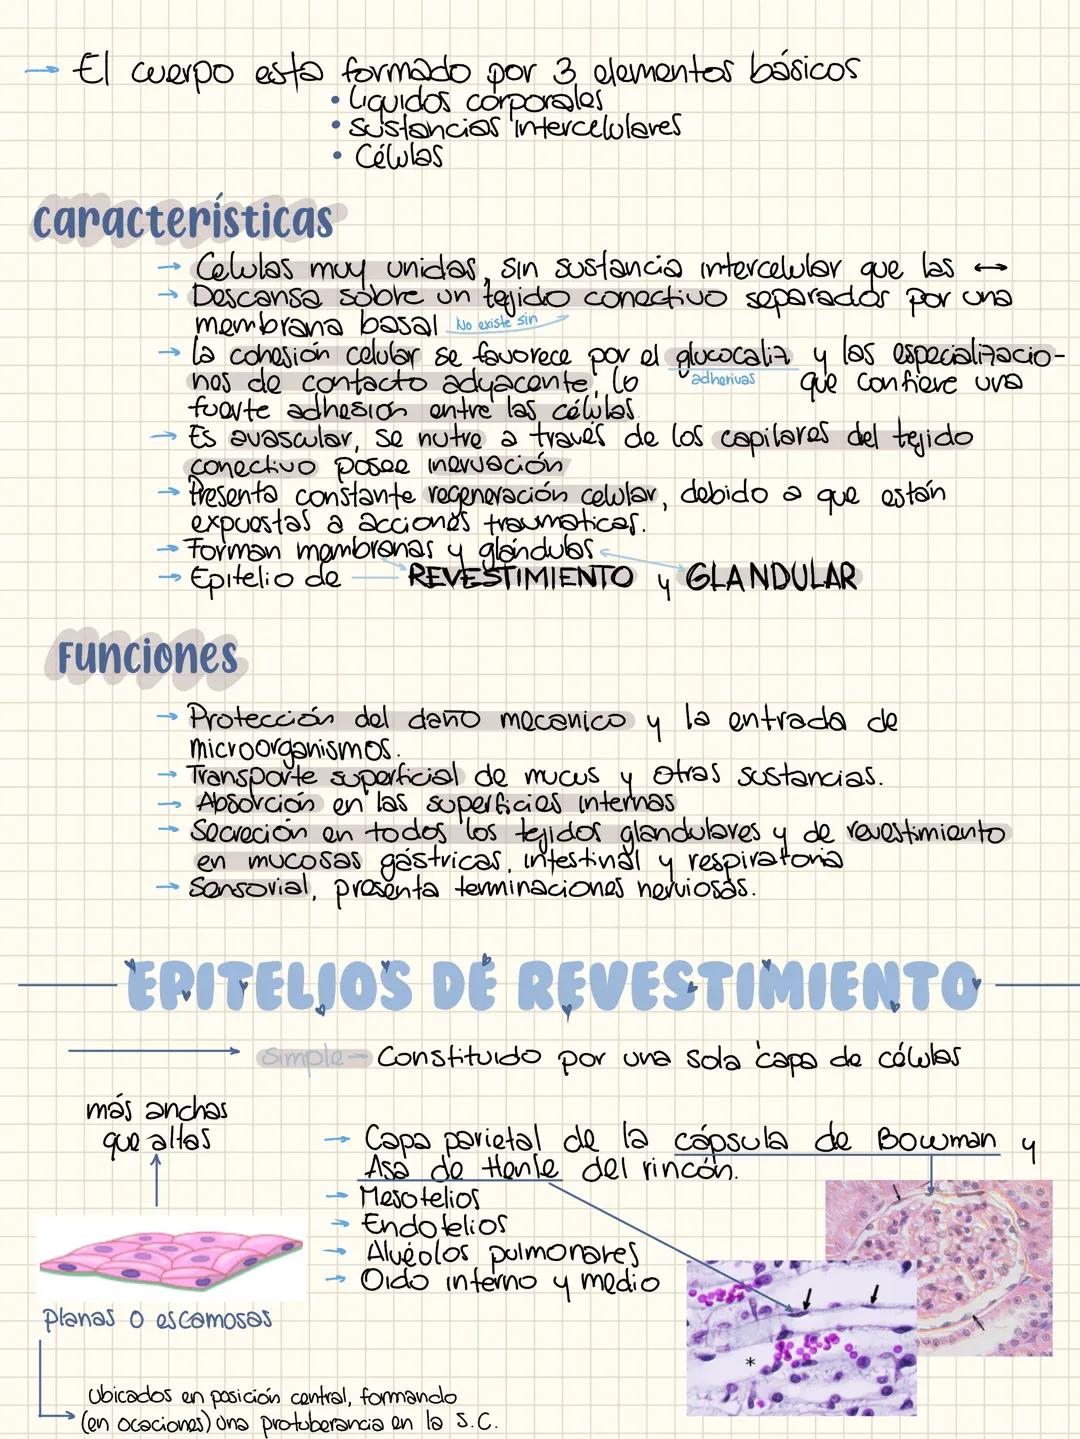 → El cuerpo esta formado por 3 elementos básicos
• Líquidos corporales
• Sustancias intercelulares
• Células
características
→ Celulas muy unidas, sin sustancia intercelular que las ↔
→ Descansa sobre un tejido conectivo separados por una
membrana basal No existe sin
→ La cohesión celular se favorece por el glucocaliz y las especializacio-
nes de contacto adyacente, lo adherivas que confiere una
fuerte adhesión entre las células.
→ Es avascular, se nutre a través de los capilares del tejido
conectivo posee inervación
→ Presenta constante regeneración celular, debido a que están
expuestas a acciones traumaticas.
→ Forman membranas y glándulas
→ Epitelio de REVESTIMIENTO y GLANDULAR
Funciones
→ Protección del daño mecanico y la entrada de
microorganismos.
→ Transporte superficial de mucus y otras sustancias.
→ Absorción en las superficies internas
→ Secreción en todos los tejidos glandulares y de revestimiento
en mucosas gástricas, intestinal y respiratoria
→ Sensorial, presenta terminaciones nerviosas.
EPITELIOS DE REVESTIMIENTO
Simple - Constituido por una sola capa de células
más anchas
que altas
→ Capa parietal de la cápsula de Bowman y
Asa de Henle del rincón.
→ Mesotelios
→ Endotelios
→ Alvéolos pulmonares
→ Oido interno y medio
Planas o escamosas
*
Ubicados en posición central, formando
(en ocaciones) una protuberancia en la S.C.